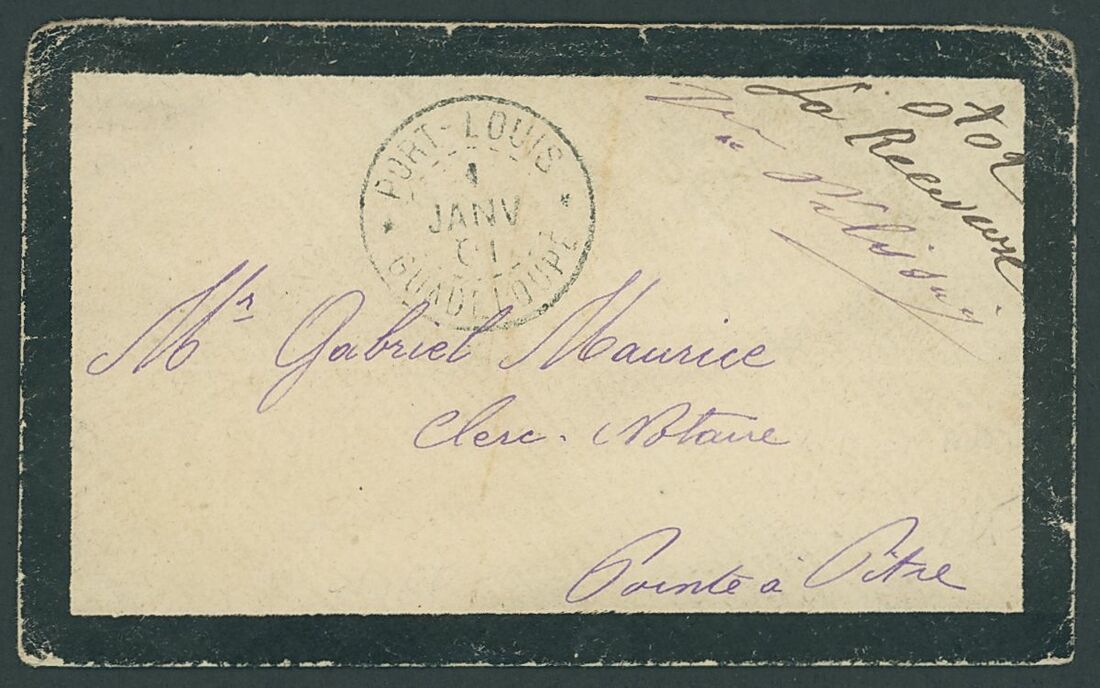 PORT-LOUIS
1
JANV
91
GUADELOUPE
La Receveuse
Mr Gabriel Maurice
Clerc. Notaire
Pointe à Pitre